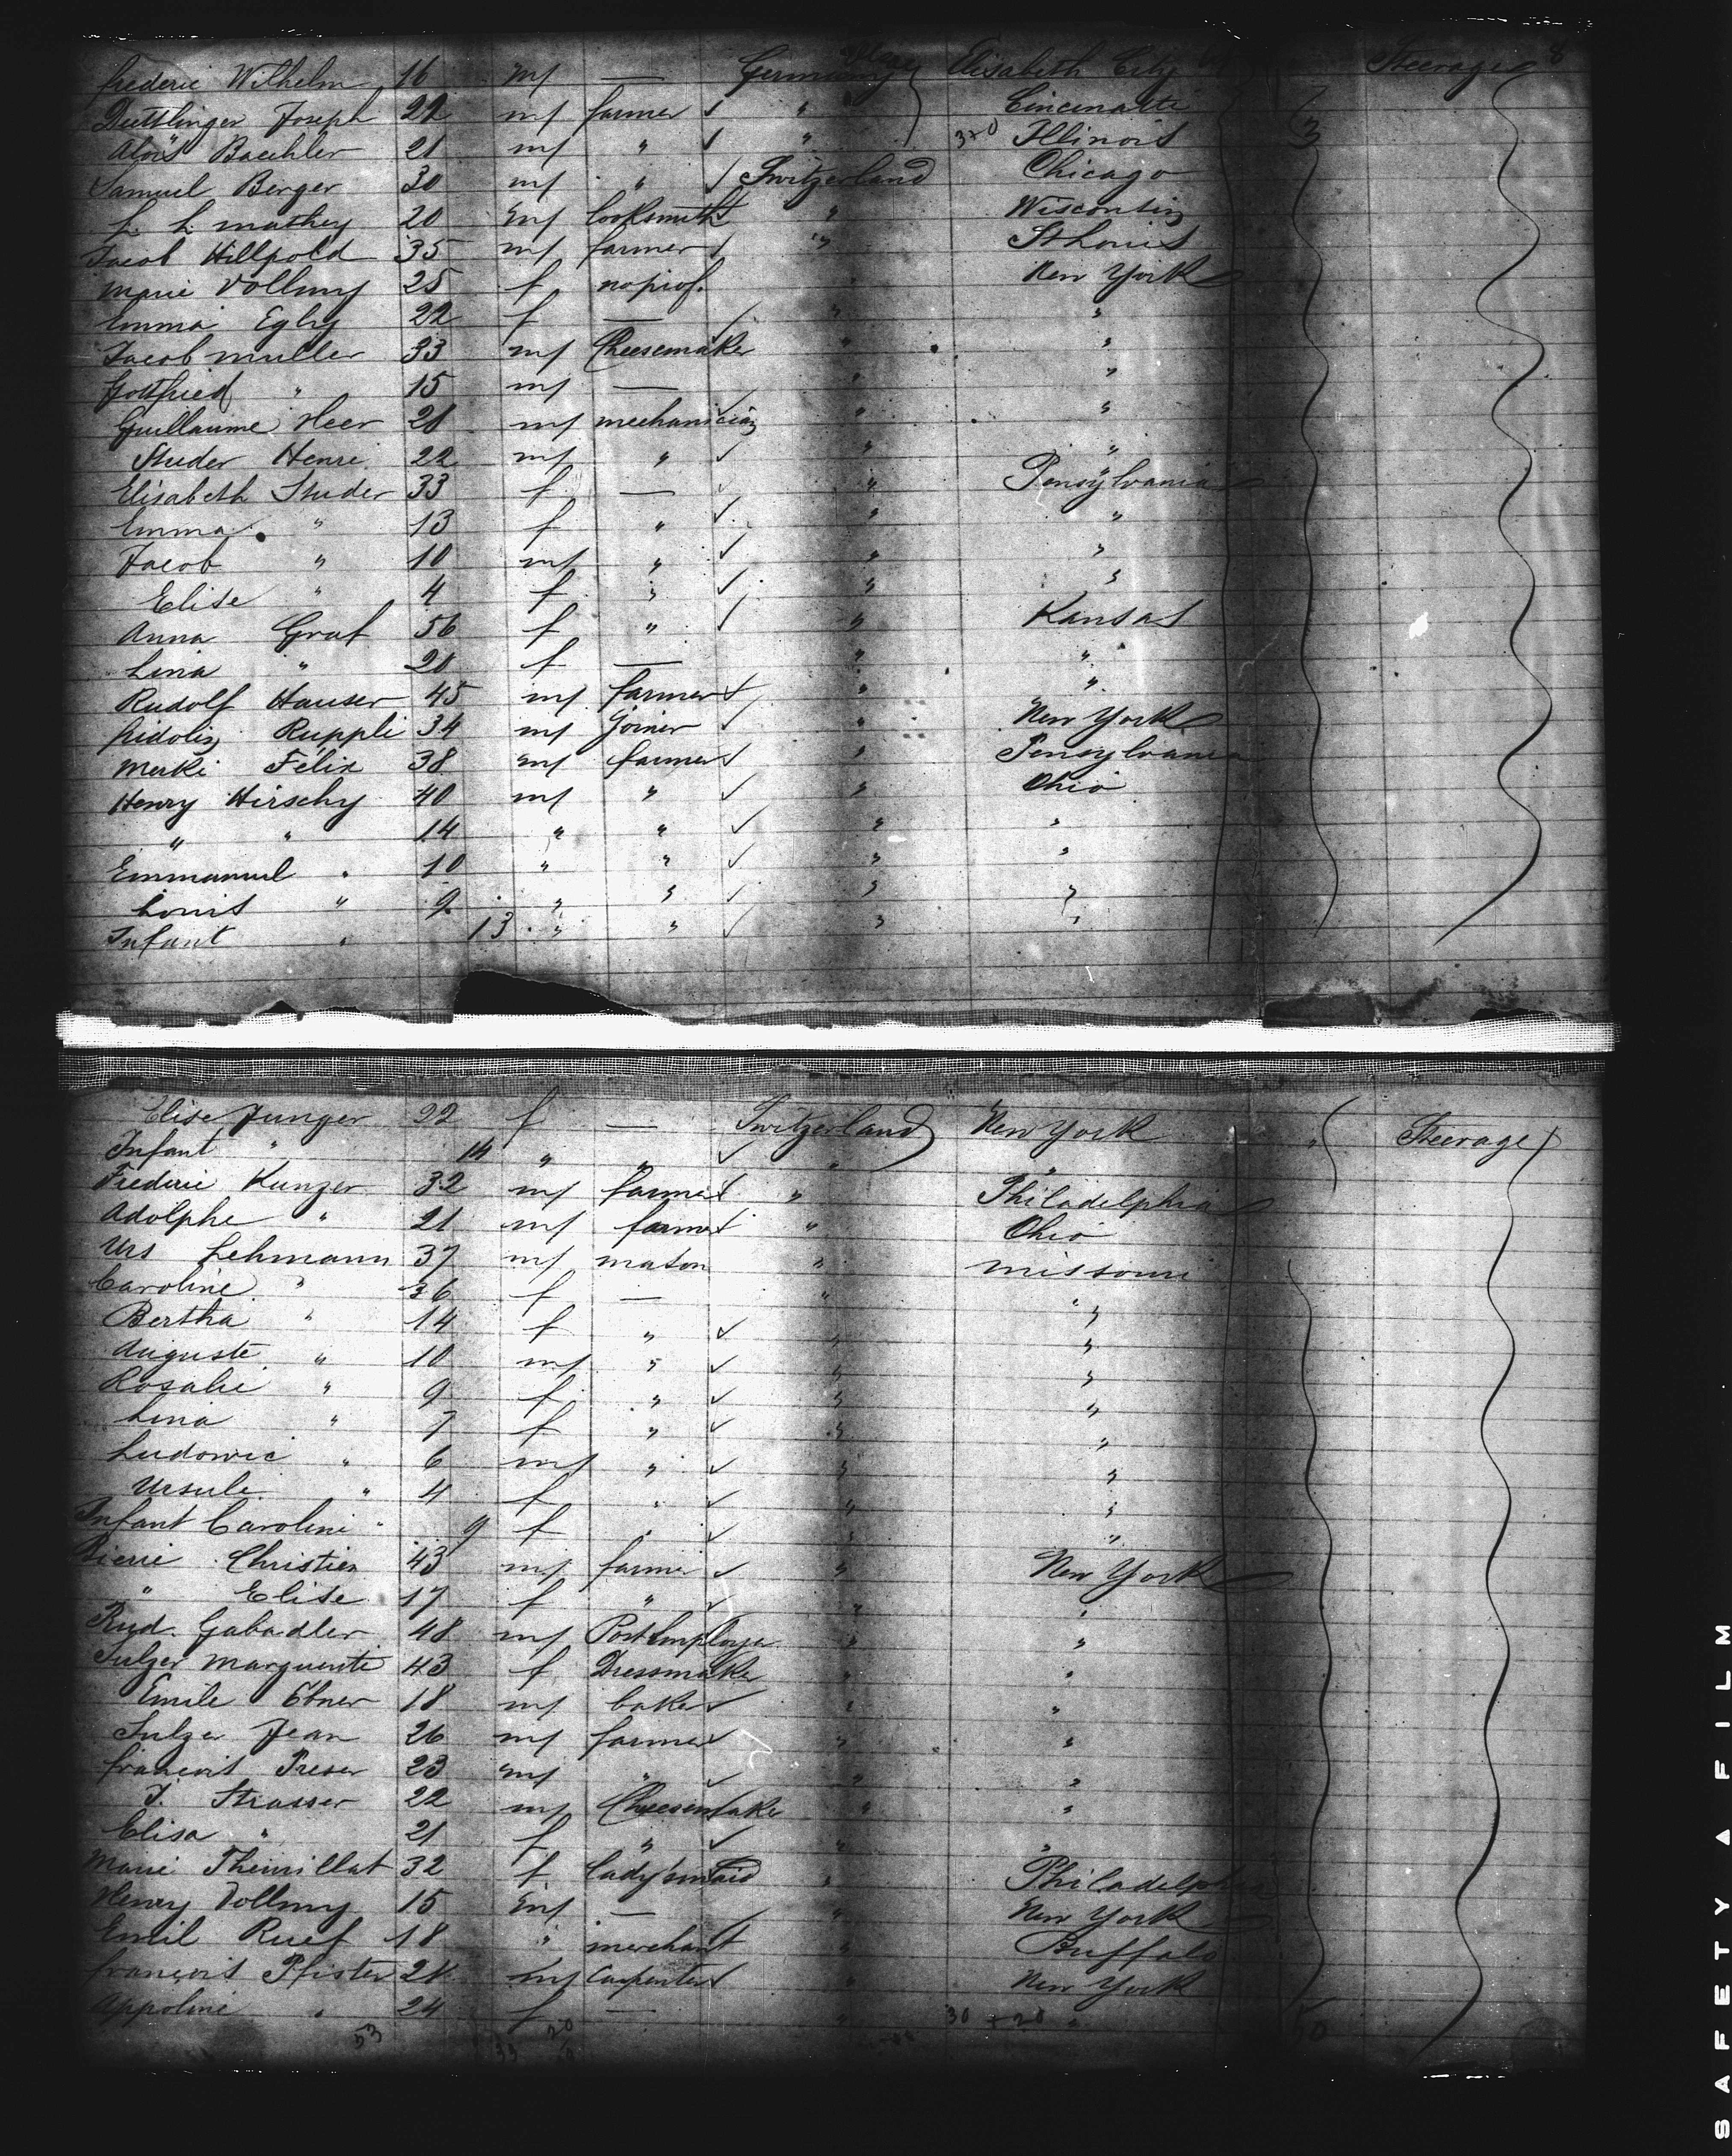 frederic Wilhelm 16 m — Germany Elisabeth City Steerage 8
Duttlinger Joseph 22 m farmer ✓ " Cincinatti
Aloïs Baechler 21 m " ✓ " 320 Illinois 3
Samuel Berger 30 m " ✓ Switzerland Chicago
L. L. mathey 20 m looksmith " Wisconsin
Jacob Hillpold 35 m farmer " St Louis
Marie Vollmy 25 f no prof. " New York
Emma Egly 22 f — " "
Jacob muller 33 m Cheesemaker " "
Gottfried " 15 m — " "
Guillaume Heer 28 m mechanician " "
Studer Henri 22 m " ✓ " "
Elisabeth Studer 33 f — " Pensylvania
Emma " 13 f " ✓ " "
Jacob " 10 m " ✓ " "
Elise " 4 f " ✓ " "
Anna Graf 56 f " ✓ " Kansas
Lina " 20 f — " "
Rudolf Hauser 45 m farmer " "
fridolin Ruppli 34 m Joiner ✓ " New York
Merki Félix 38 m farmer " Pensylvania
Henry Hirschy 40 m " ✓ " Ohio
" " 14 " " ✓ " "
Emmanuel " 10 " " ✓ " "
Louis " 9 " " ✓ " "
Infant " 13 " " ✓ " "
Elise Junger 22 f — Switzerland New York " Steerage
Infant " 14 " " ✓ " "
Frederic Kunzer 32 m farmer " Philadelphia
Adolphe " 21 m farmer " Ohio
Urs Lehmann 37 m mason " missouri
Caroline " 36 f — " "
Bertha " 14 f " ✓ " "
Auguste " 10 m " ✓ " "
Rosalie " 9 f " ✓ " "
Lina " 7 f " ✓ " "
Ludowic " 6 m " ✓ " "
Ursule " 4 f " ✓ " "
Infant Caroline " 9 f " ✓ " "
Pierri Christien 43 m farmer ✓ " New York
" Elise 17 f " ✓ " "
Rud. Gabadler 48 m Post Employe " "
Sulzer Marguerite 43 f Dressmaker " "
Emile Ebner 18 m baker " "
Sulzer Jean 26 m farmer " "
françois Preser 23 m " ✓ " "
J. Strasser 22 m Cheesemaker " "
Elisa " 21 f " ✓ " "
Marie Theurillat 32 f lady's maid " Philadelphia
Henry Vollmy 15 m — " New York
Emil Ruef 18 " merchant " Buffalo
françois Pfister 28 m Carpenter " New York
Appoline " 24 f — " "
53 33 20 30 + 20 50
SAFETY A FILM